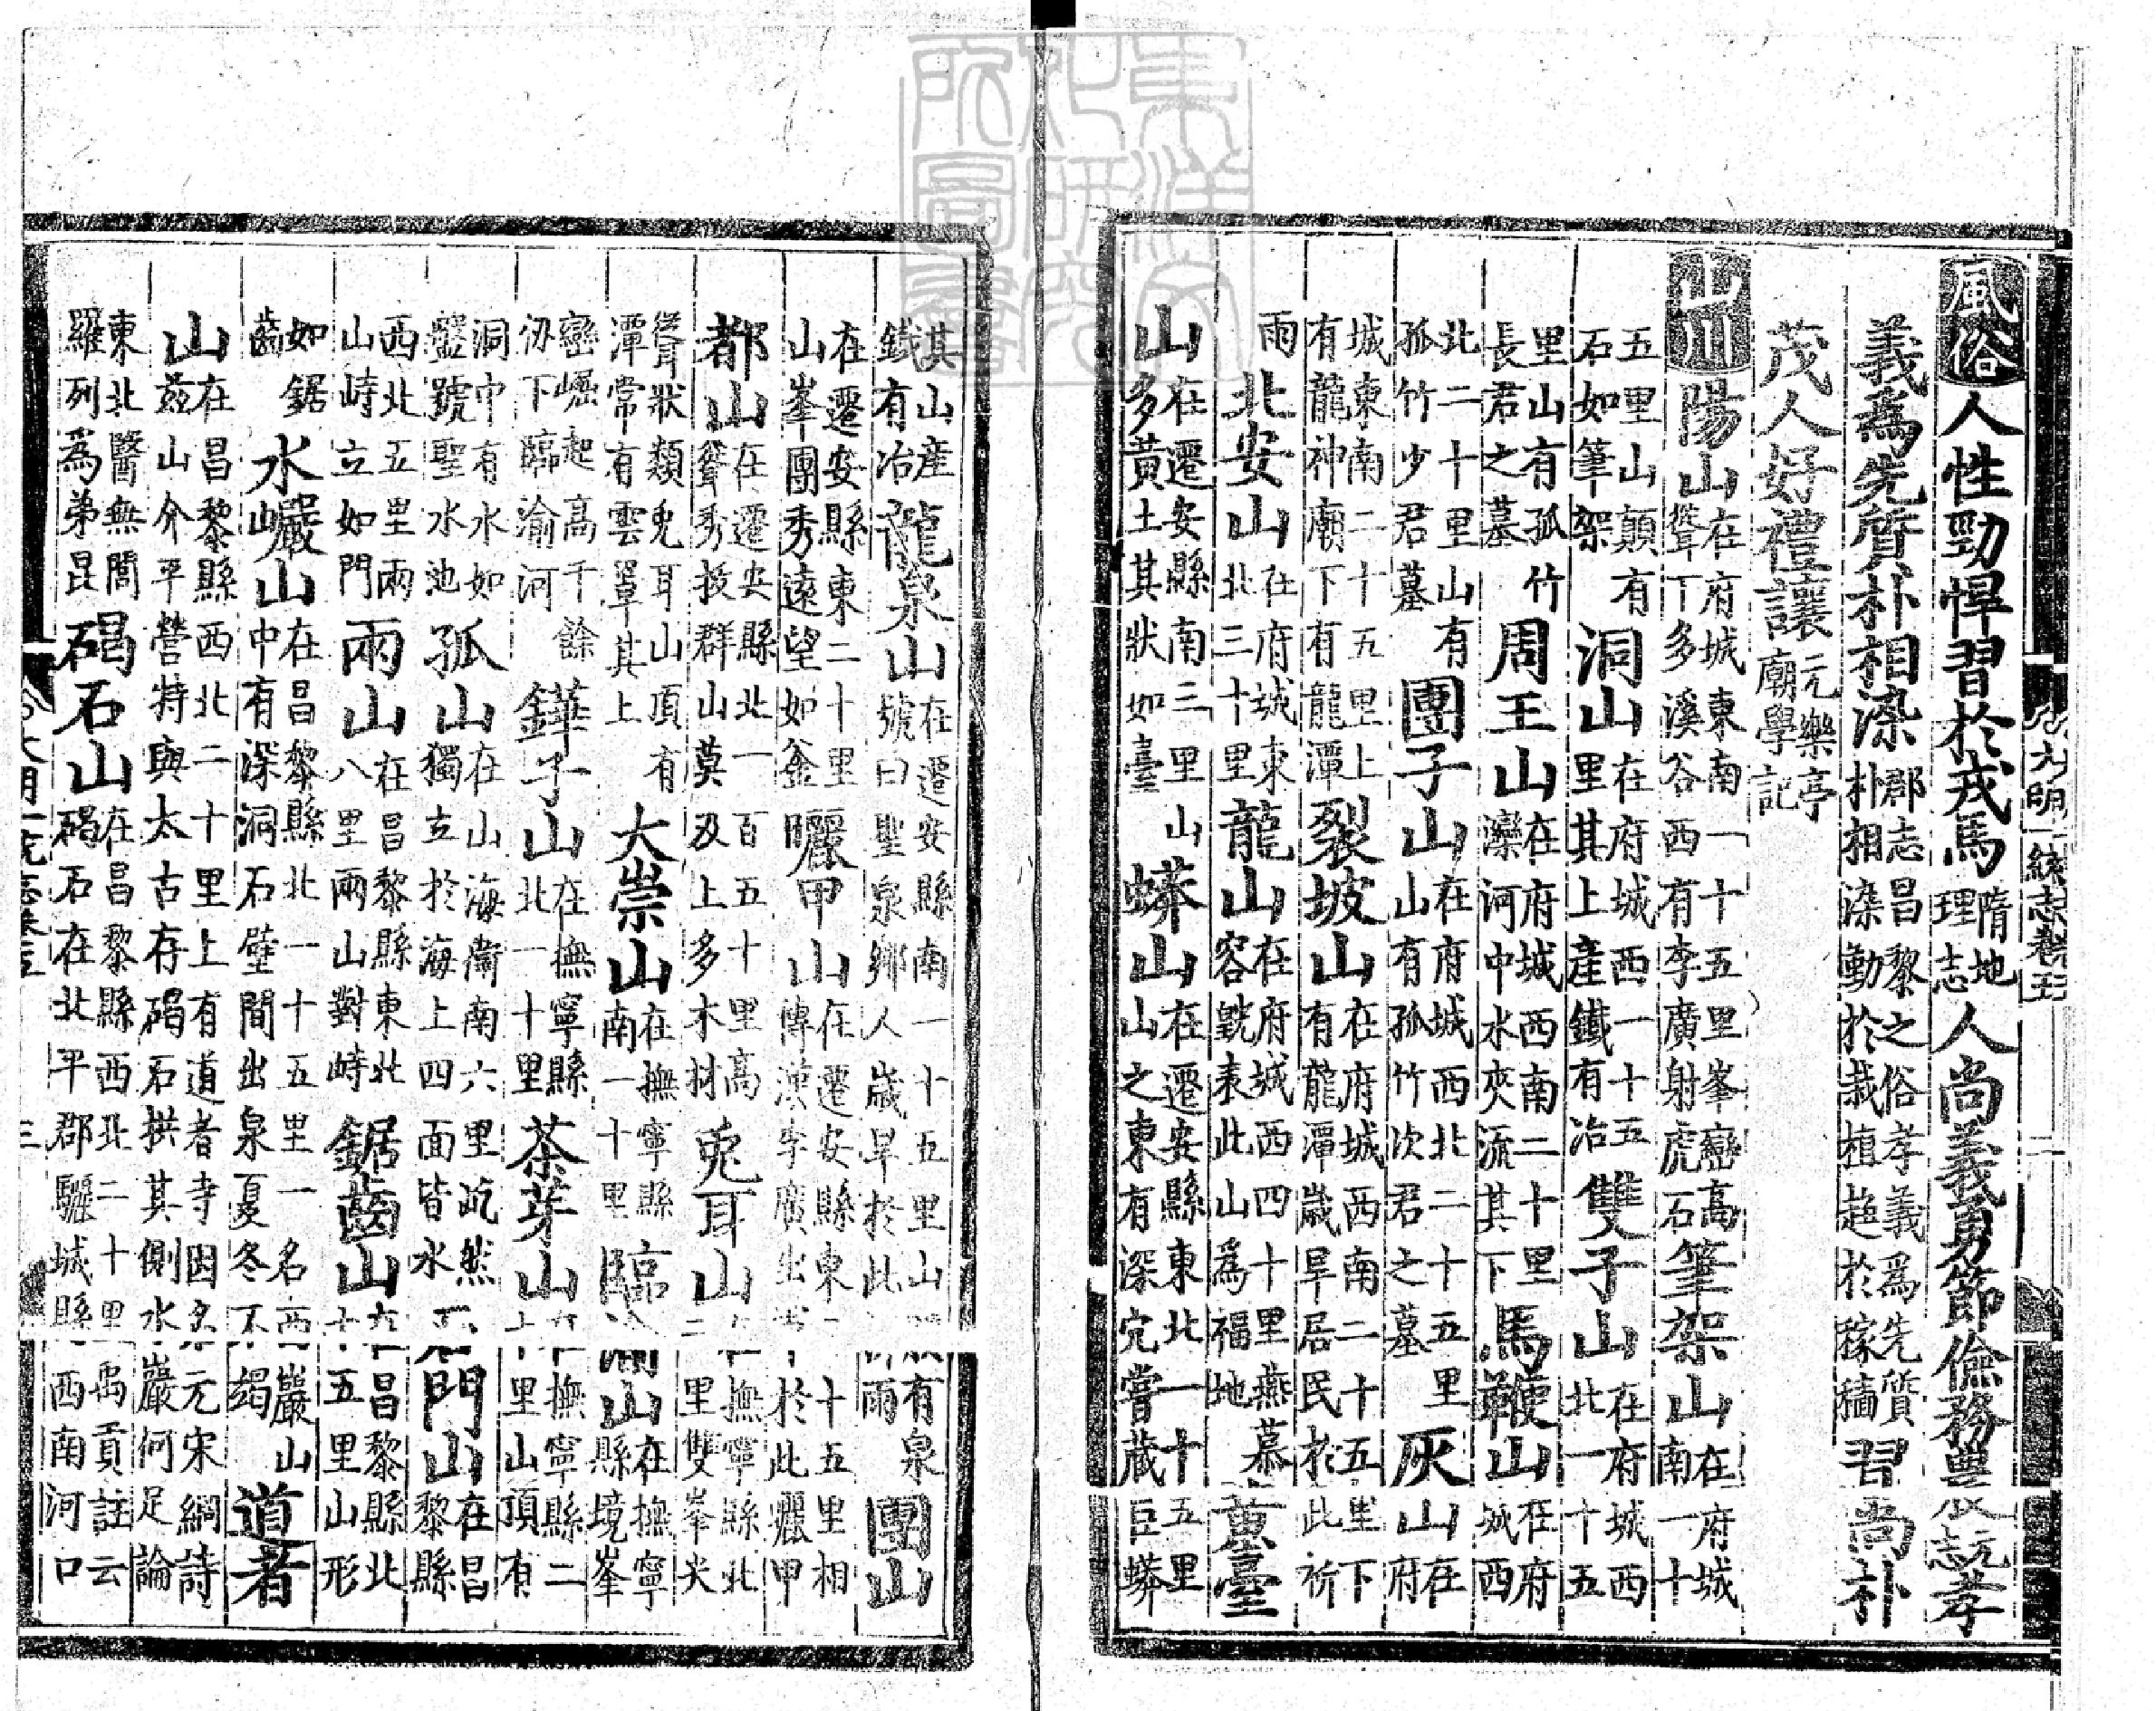 大明一統志卷五 二
風俗人性勁悍習於戎馬隋地理志人尚義勇節儉務農元志孝
義爲先質朴相染郡志昌黎之俗孝義爲先質朴相染動於栽植趨於稼穡習尚朴
茂人好禮讓元樂亭廟學記
山川陽山在府城東南一十五里峯巒高聳下多溪谷西有李廣射虎石筆架山在府城南一十
五里山顛有石如筆架洞山在府城西一十五里其上產鐵有冶雙子山在府城西北一十五
里山有孤竹長君之墓周王山在府城西南二十里灤河中水夾流其下馬鞭山在府城西
北二十里山有孤竹少君墓團子山在府城西北二十五里山有孤竹次君之墓灰山在府
城東南二十五里上有龍神廟下有龍潭裂坡山在府城西南二十五里下有龍潭歲旱居民於此祈
雨北安山在府城東北三十里龍山在府城西四十里燕慕容皝表此山爲福地黃臺
山在遷安縣南三里山多黃土其狀如臺蟒山在遷安縣東北一十五里山之東有深穴嘗藏巨蟒
其山產鐵有冶龍泉山在遷安縣南一十五里山有泉號曰聖泉鄉人歲旱於此祈雨團山
在遷安縣東二十里山峯團秀遠望如釜曬甲山在遷安縣東二十五里相傳漢李廣出於此曬甲
都山在遷安縣北一百五十里高聳秀拔群山莫及上多木材兎耳山在撫寧縣北二里雙峯尖
聳狀類兎耳山頂有潭常有雲罩其上大崇山在撫寧縣南一十里臨渝山在撫寧縣境峯
巒崛起高千餘仭下臨渝河鏵子山在撫寧縣北一十里茶芽山在撫寧縣二十里山頂有
洞中有水如盤號聖水池孤山在山海衞南六里屹然獨立於海上四面皆水石門山在昌黎縣
西北五里兩山峙立如門兩山在昌黎縣東北八里兩山對峙鋸齒山在昌黎縣北十五里山形
如鋸齒水巖山在昌黎縣北一十五里一名西巖山中有深洞石壁間出泉夏冬不竭道者
山在昌黎縣西北二十里上有道者寺因名元宋綱詩茲山介平營特與太古存碣石拱其側水巖何足論
東北醫無閭羅列爲弟昆碣石山在昌黎縣西北二十里禹貢註云碣石在北平郡驪城縣西南河口
大明一統志卷五 三